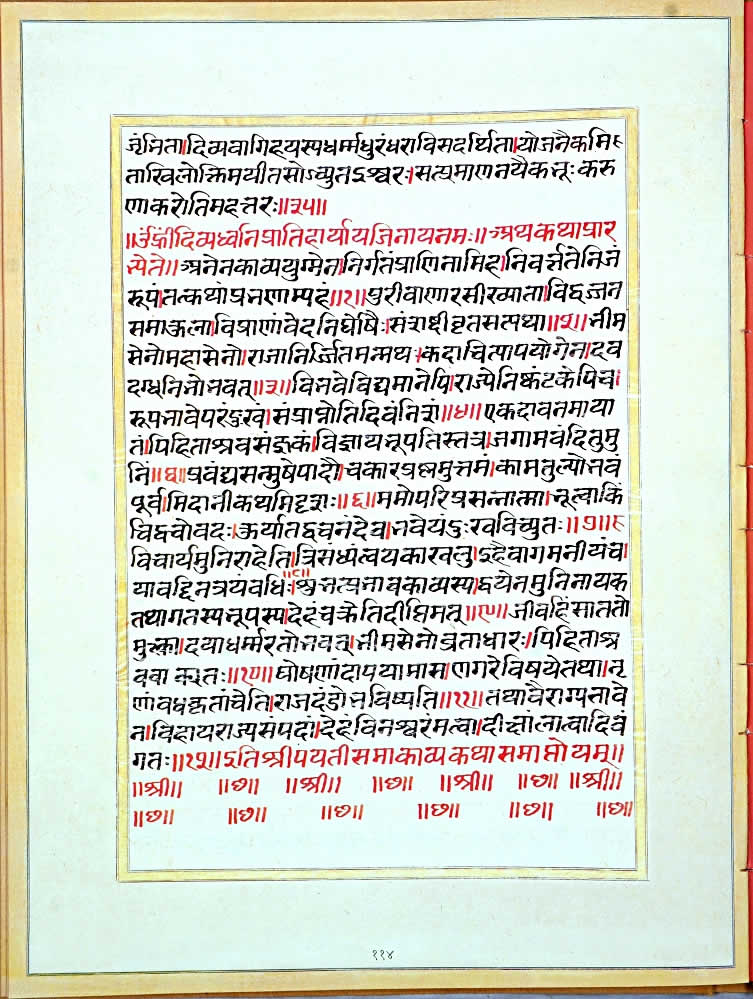 जृंभिता।दिव्यवागिहयस्यधर्म्मधुरंधराविसदर्थिता।योजनैकमि
ताखिलोक्तिमयीतसोऽच्युतईश्वरः।सत्प्रमाणनयैकभूः करु
णाकरोतिमहत्तरः॥३५॥
॥उँह्रींदिव्यध्वनिप्रातिहार्यायजिनायनमः॥अथकथाप्रार
भ्यते॥अनेनकाव्ययुग्मेन।निर्गतंप्राणिनामिह।निवर्त्ततेनिजं
रूपं।तत्कथांप्रभणाम्यहं॥१॥पुरीवाणारसीख्याता।विद्वज्जन
समाकुला।विप्राणांवेदनिर्घोषैः।संराद्दीवृतसत्पथा॥२॥भीम
सेनोमहासेनो।राजानिर्ज्जितमन्मथः।कदाचित्पापयोगेन।दव
दग्धनिभोभवत्॥३॥विभवेविद्यमानेपि।राज्येनिष्कंटकेपिच।
रूपभावेपरंदुःखं।संप्राप्नोतिदिवंनिशं॥४॥एकदावनमाया
तं।पिहिताश्रवसंज्ञकं।विज्ञायनृपतिस्तत्र।जगामवंदितुमु
निं॥५॥प्रवंद्यसन्मुषेपादौ।चकारप्रह्नमुत्तमं।कामतुल्योभवं
पूर्व।मिदानीकथमिदृशः॥६॥ममोपरिप्रसन्नात्मा।भूत्वाकिं
चिद्वचोवदः।
विचार्यमुनिराहेति।त्रिसंध्यंत्वयकाखलु।इहैवागमनीयंच।
यावद्दिनत्रयंवधिः।॥८॥श्रुभत्प्रभावकाव्यस्य।द्वयेनमुनिनायक
तथागतस्यभूपस्य।देहंचक्रेतिदीप्तिमत्॥९॥जीवहिंसाततो
मुक्त्का।दयाधर्म्मरतोभवत्।भीमसेनोव्रताधारः।पिहिताश्र
ववाक्यतः॥१०॥घोषणांदापयामास।णगरेविषयेतथा।नृ
णांवधकृतांचेति।राजदंडोभविष्यति॥११॥तथावैराग्यभावे
न।विहायराज्यसंपदां।देहंविनश्वरंमत्वा।दीक्षांलात्वादिवं
गतः॥१२॥इतिश्रीपयतीसमाकाव्यकथासमाप्तोयम्॥
॥श्री॥ ॥छ॥ ॥श्री॥ ॥छ॥ ॥श्री॥ ॥छ॥ ॥श्री॥
॥छ॥ ॥छ॥ ॥छ॥ ॥छ॥ ॥छ॥ ॥छ॥
११४